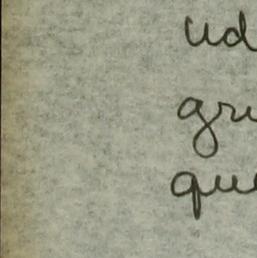 ud
gru
que